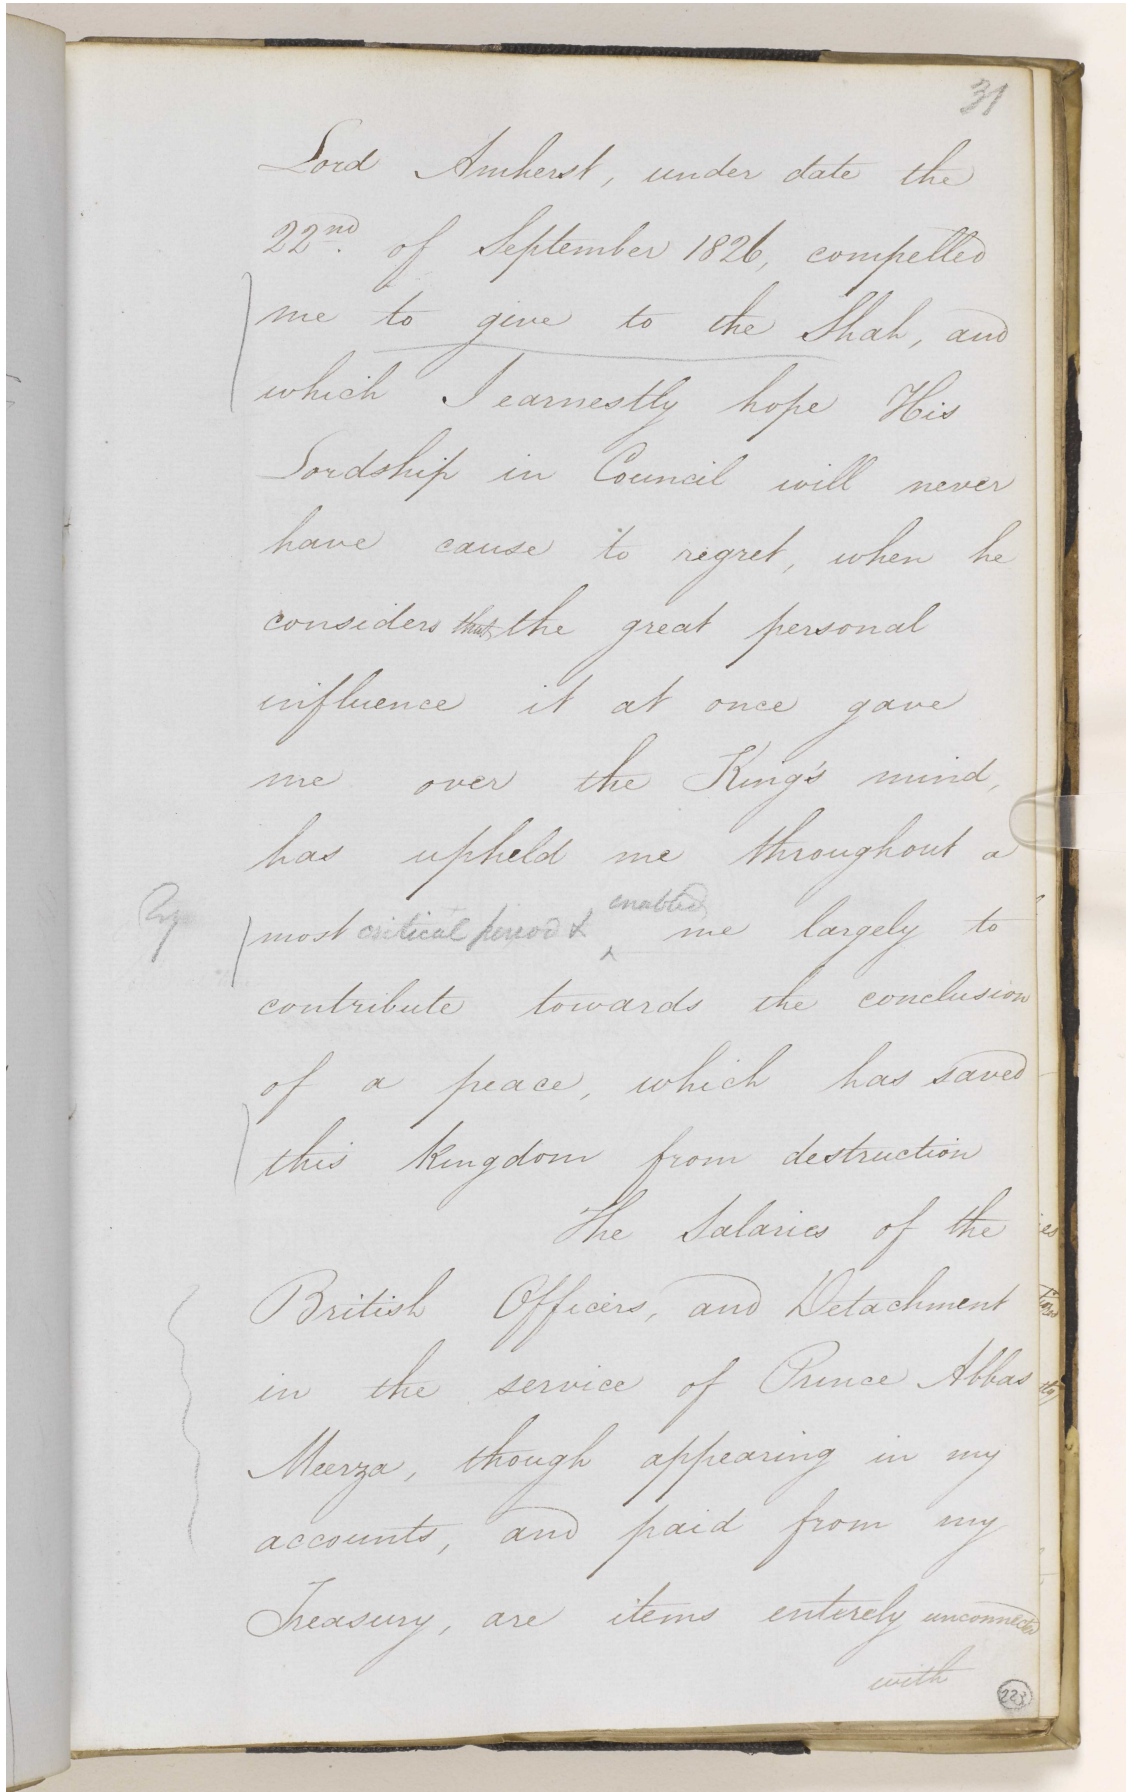 31
Lord Amherst, under date the
22nd. of September 1826, compelled
me to give to the Shah, and
which I earnestly hope His
Lordship in Council will never
have cause to regret, when he
considers that the great personal
influence it at once gave
me over the King's mind,
has upheld me throughout a
enabled
most critical period & ^ me largely to
contribute towards the conclusion
of a peace, which has saved
this Kingdom from destruction
The Salaries of the
British Officers, and Detachment
in the service of Prince Abbas
Meerza, though appearing in my
accounts, and paid from my
Treasury, are items entirely unconnected
with
223